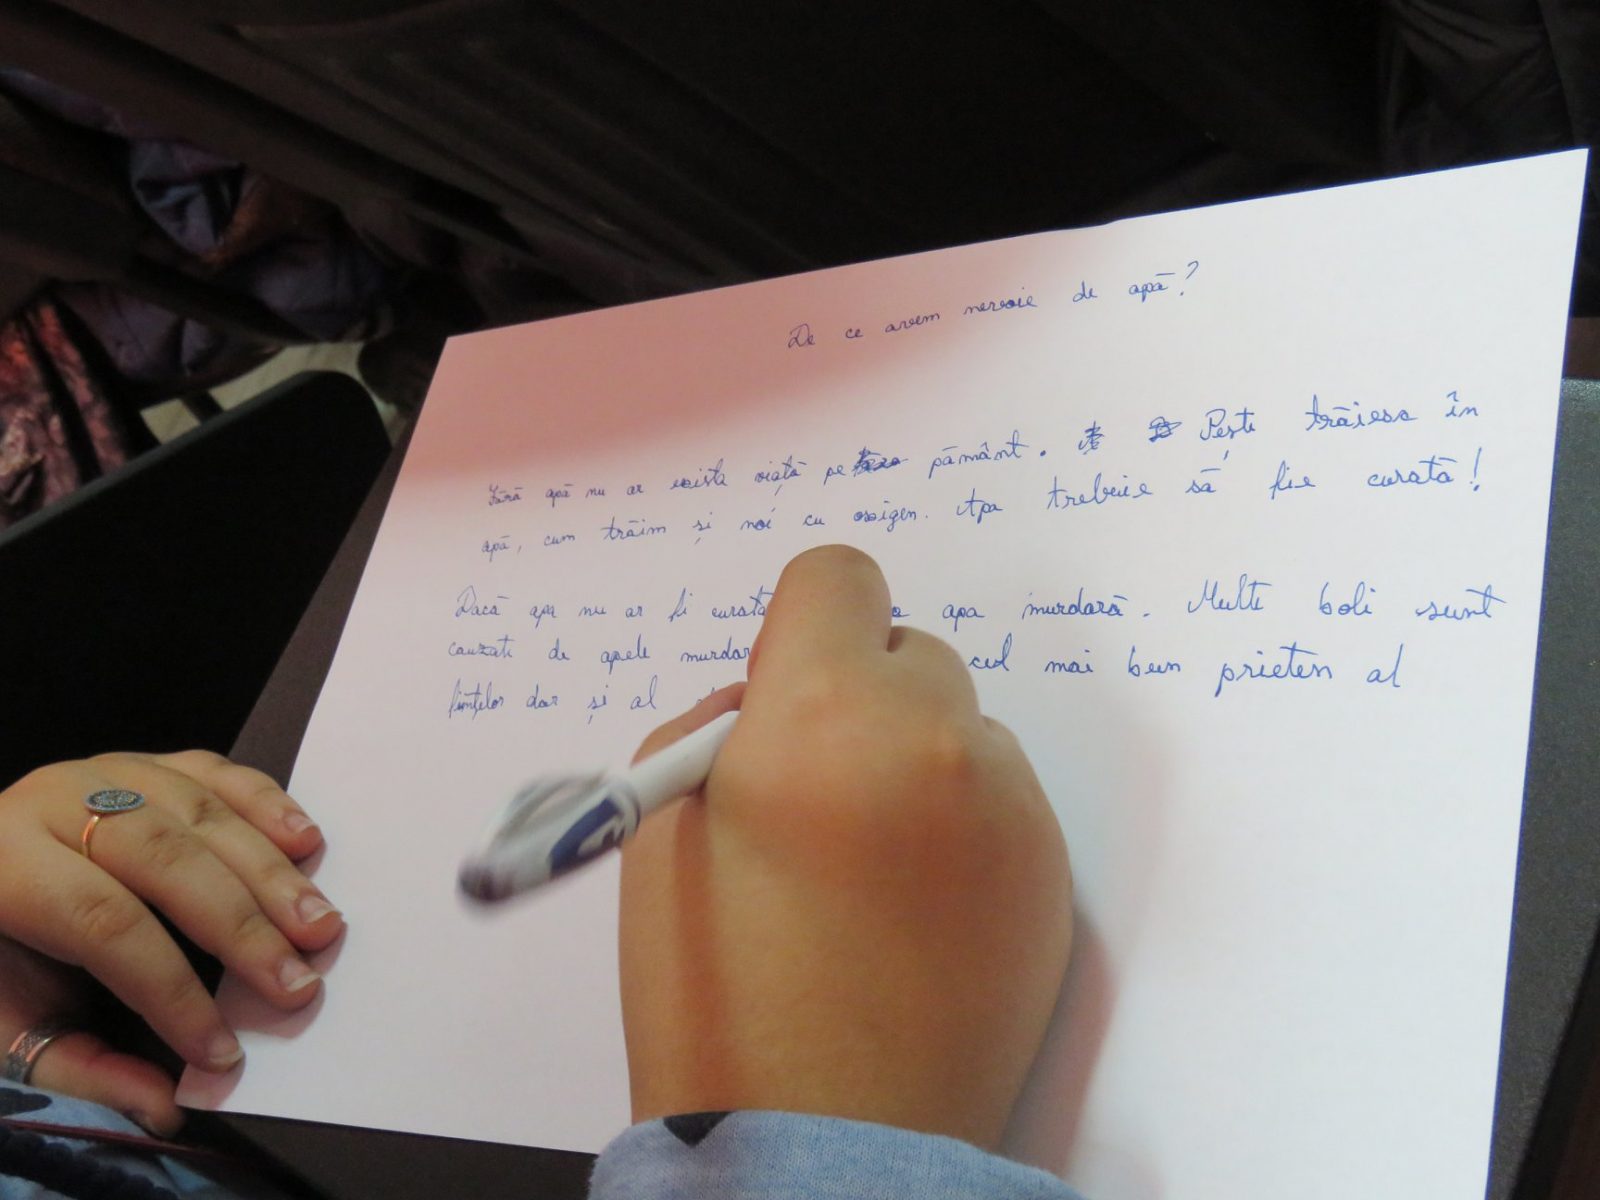 De ce avem nevoie de apă?
Fără apă nu ar exista viață pe pământ. Pește trăiesc în
apă, cum trăim și noi cu oxigen. Apa trebuie să fie curată!
Dacă apa nu ar fi curată apa murdară. Multe boli sunt
cauzate de apele murdar cel mai bun prieten al
ființelor dar și al